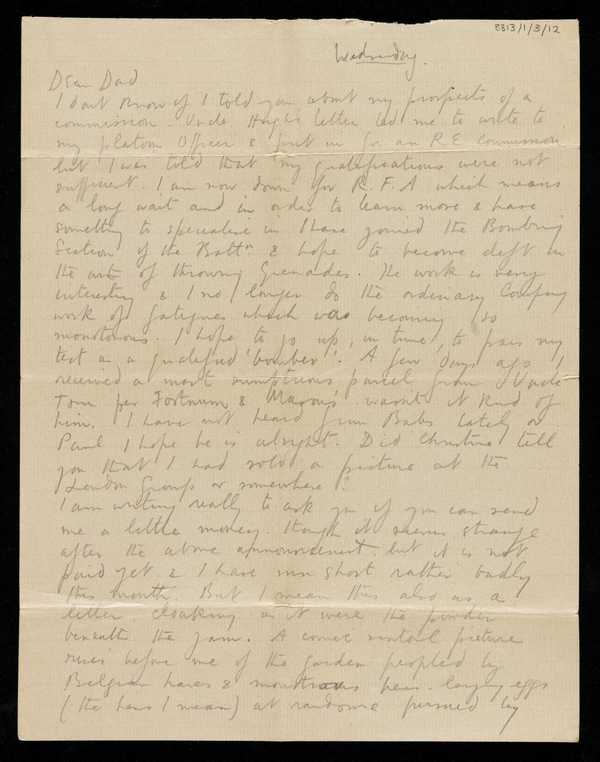 8313/1/3/12
Wednesday.
Dear Dad
I dont know if I told you about my prospects of a
commission. Uncle Hugh's letter led me to write to
my platoon Officer & put in for an R E Commission
but I was told that my qualifications were not
sufficient. I am now down for R.F.A which means
a long wait and in order to learn more & have
something to specialise in I have joined the Bombing
Section of the Battn & hope to become deft in
the art of throwing Grenades. The work is very
interesting & I no longer do the ordinary Company
work of fatigues which was becoming so
monotonous. I hope to go up, in time, to pass my
test as a qualified 'bomber'. A few days ago I
received a most sumptuous parcel from Uncle
Tom per Fortnum & Masons wasnt it kind of
him. I have not heard from Babs lately or
Paul I hope he is alright. Did Christine tell
you that I had sold a picture at the
London Group or somewhere?
I am writing really to ask you if you can send
me a little money. though it seems strange
after the above announcement. but it is not
paid yet, & I have run short rather badly
this month. But I mean this also as a
letter cloaking as it were the powder
beneath the jam. A comic mental picture
rises before me of the garden peopled by
Belgian hares & monstrous hens laying eggs
(the hens I mean) at random pursued by